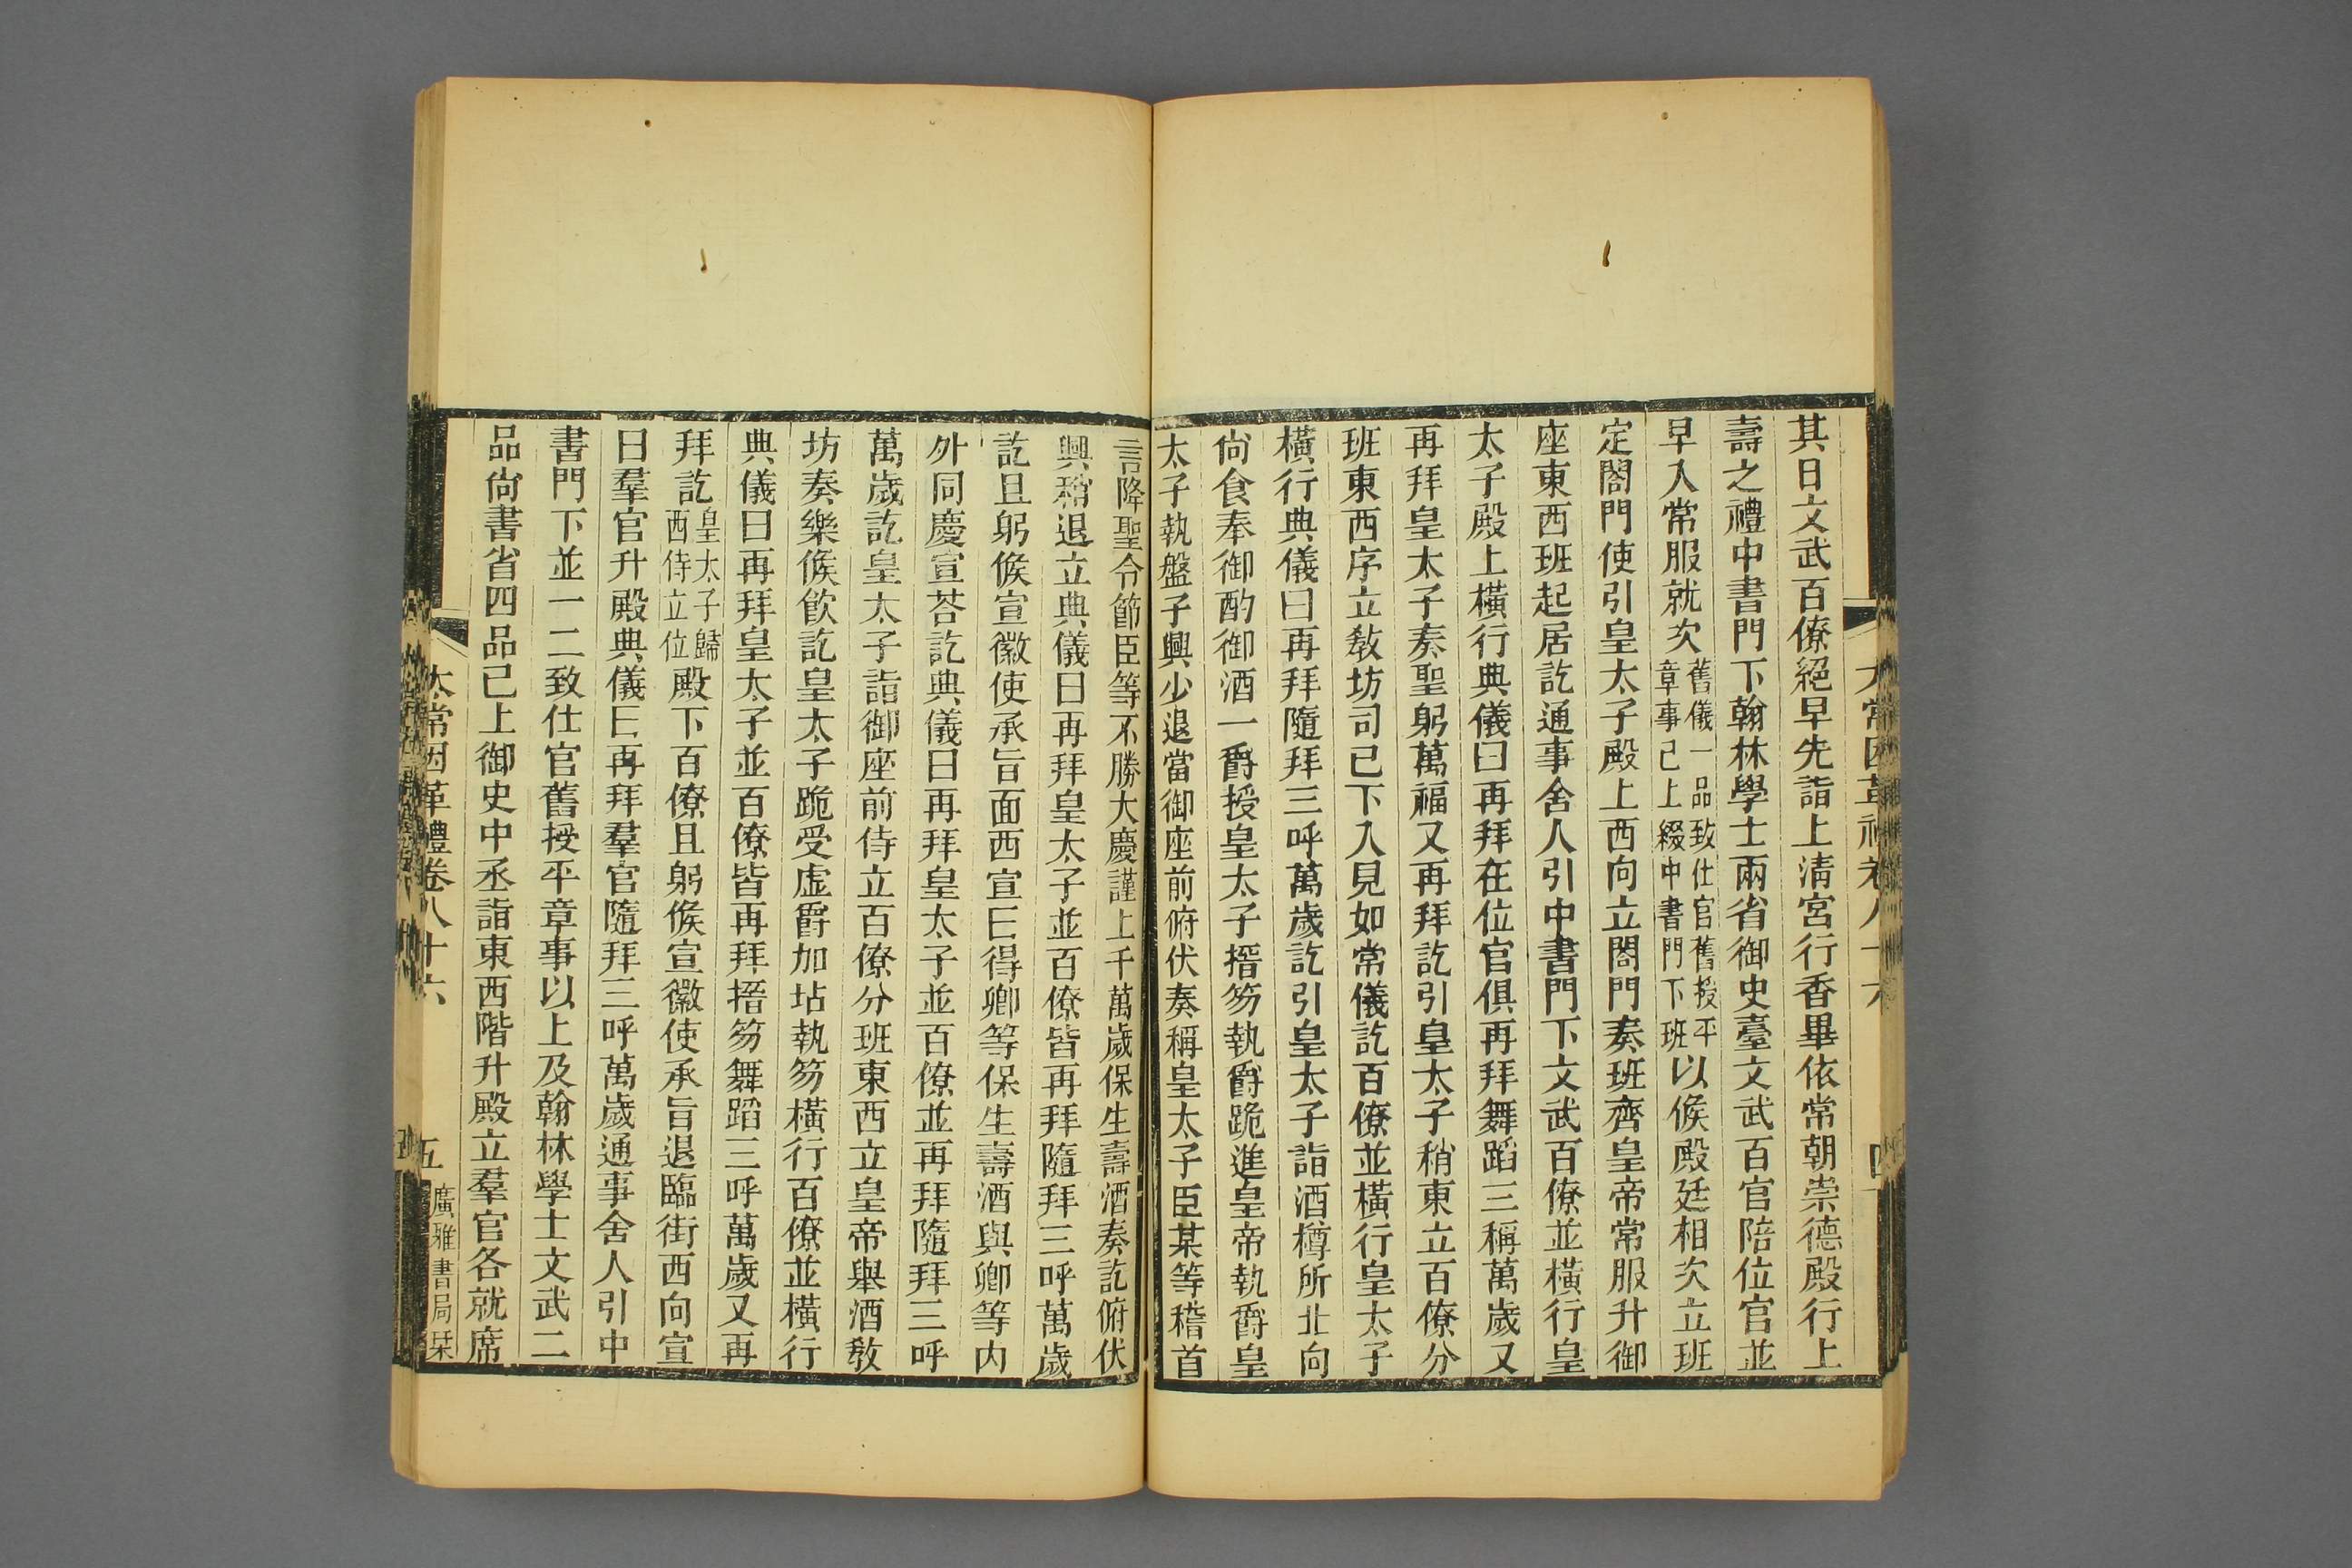 其日文武百僚絕早先詣上清宮行香畢依常朝崇德殿行上
壽之禮中書門下翰林學士兩省御史臺文武百官陪位官並
早入常服就次舊儀一品致仕官舊授平章事已上綴中書門下班以候殿廷相次立班
定閤門使引皇太子殿上西向立閤門奏班齊皇帝常服升御
座東西班起居訖通事舍人引中書門下文武百僚並橫行皇
太子殿上橫行典儀曰再拜在位官俱再拜舞蹈三稱萬歲又
再拜皇太子奏聖躬萬福又再拜訖引皇太子稍東立百僚分
班東西序立敎坊司已下入見如常儀訖百僚並橫行皇太子
橫行典儀曰再拜隨拜三呼萬歲訖引皇太子詣酒樽所北向
尙食奉御酌御酒一爵授皇太子搢笏執爵跪進皇帝執爵皇
太子執盤子興少退當御座前俯伏奏稱皇太子臣某等稽首
言降聖令節臣等不勝大慶謹上千萬歲保生壽酒奏訖俯伏
興稍退立典儀曰再拜皇太子並百僚皆再拜隨拜三呼萬歲
訖且躬候宣徽使承旨面西宣曰得卿等保生壽酒與卿等内
外同慶宣荅訖典儀曰再拜皇太子並百僚並再拜隨拜三呼
萬歲訖皇太子詣御座前侍立百僚分班東西立皇帝舉酒敎
坊奏樂候飮訖皇太子跪受虛爵加坫執笏橫行百僚並橫行
典儀曰再拜皇太子並百僚皆再拜搢笏舞蹈三呼萬歲又再
拜訖皇太子歸西侍立位殿下百僚且躬候宣徽使承旨退臨街西向宣
曰羣官升殿典儀曰再拜羣官隨拜三呼萬歲通事舍人引中
書門下並一二致仕官舊授平章事以上及翰林學士文武二
品尙書省四品已上御史中丞詣東西階升殿立羣官各就席
太常因革禮卷八十六
五
廣雅書局栞